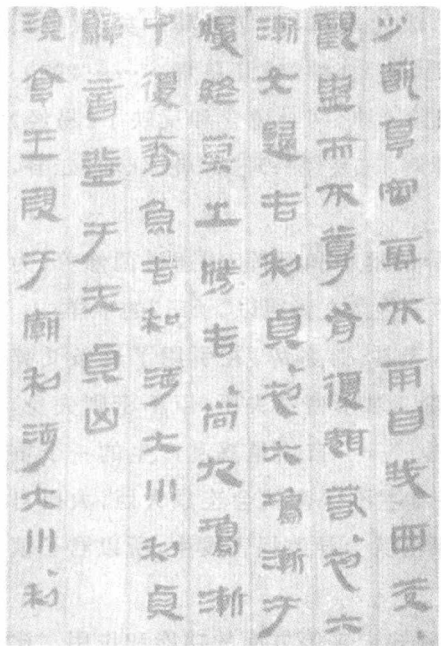 少亨密雲不雨自我西茭
觀盥而不尊有復若初六
漸女歸吉利貞初六鳿漸于
終莫之勝吉尚九鳿漸
中復魚吉和涉大川利貞
音登于天貞凶
渙亨王叚于廟利涉大川利